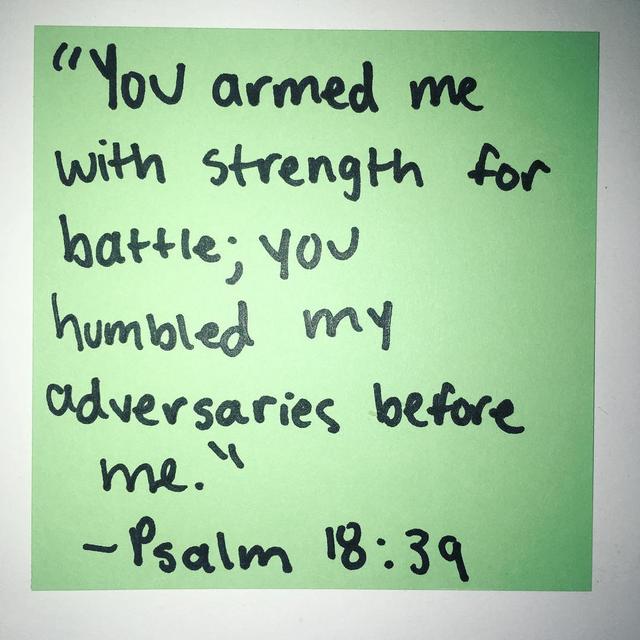 "You armed me
with strength for
battle; you
humbled my
adversaries before
me."
-Psalm 18:39